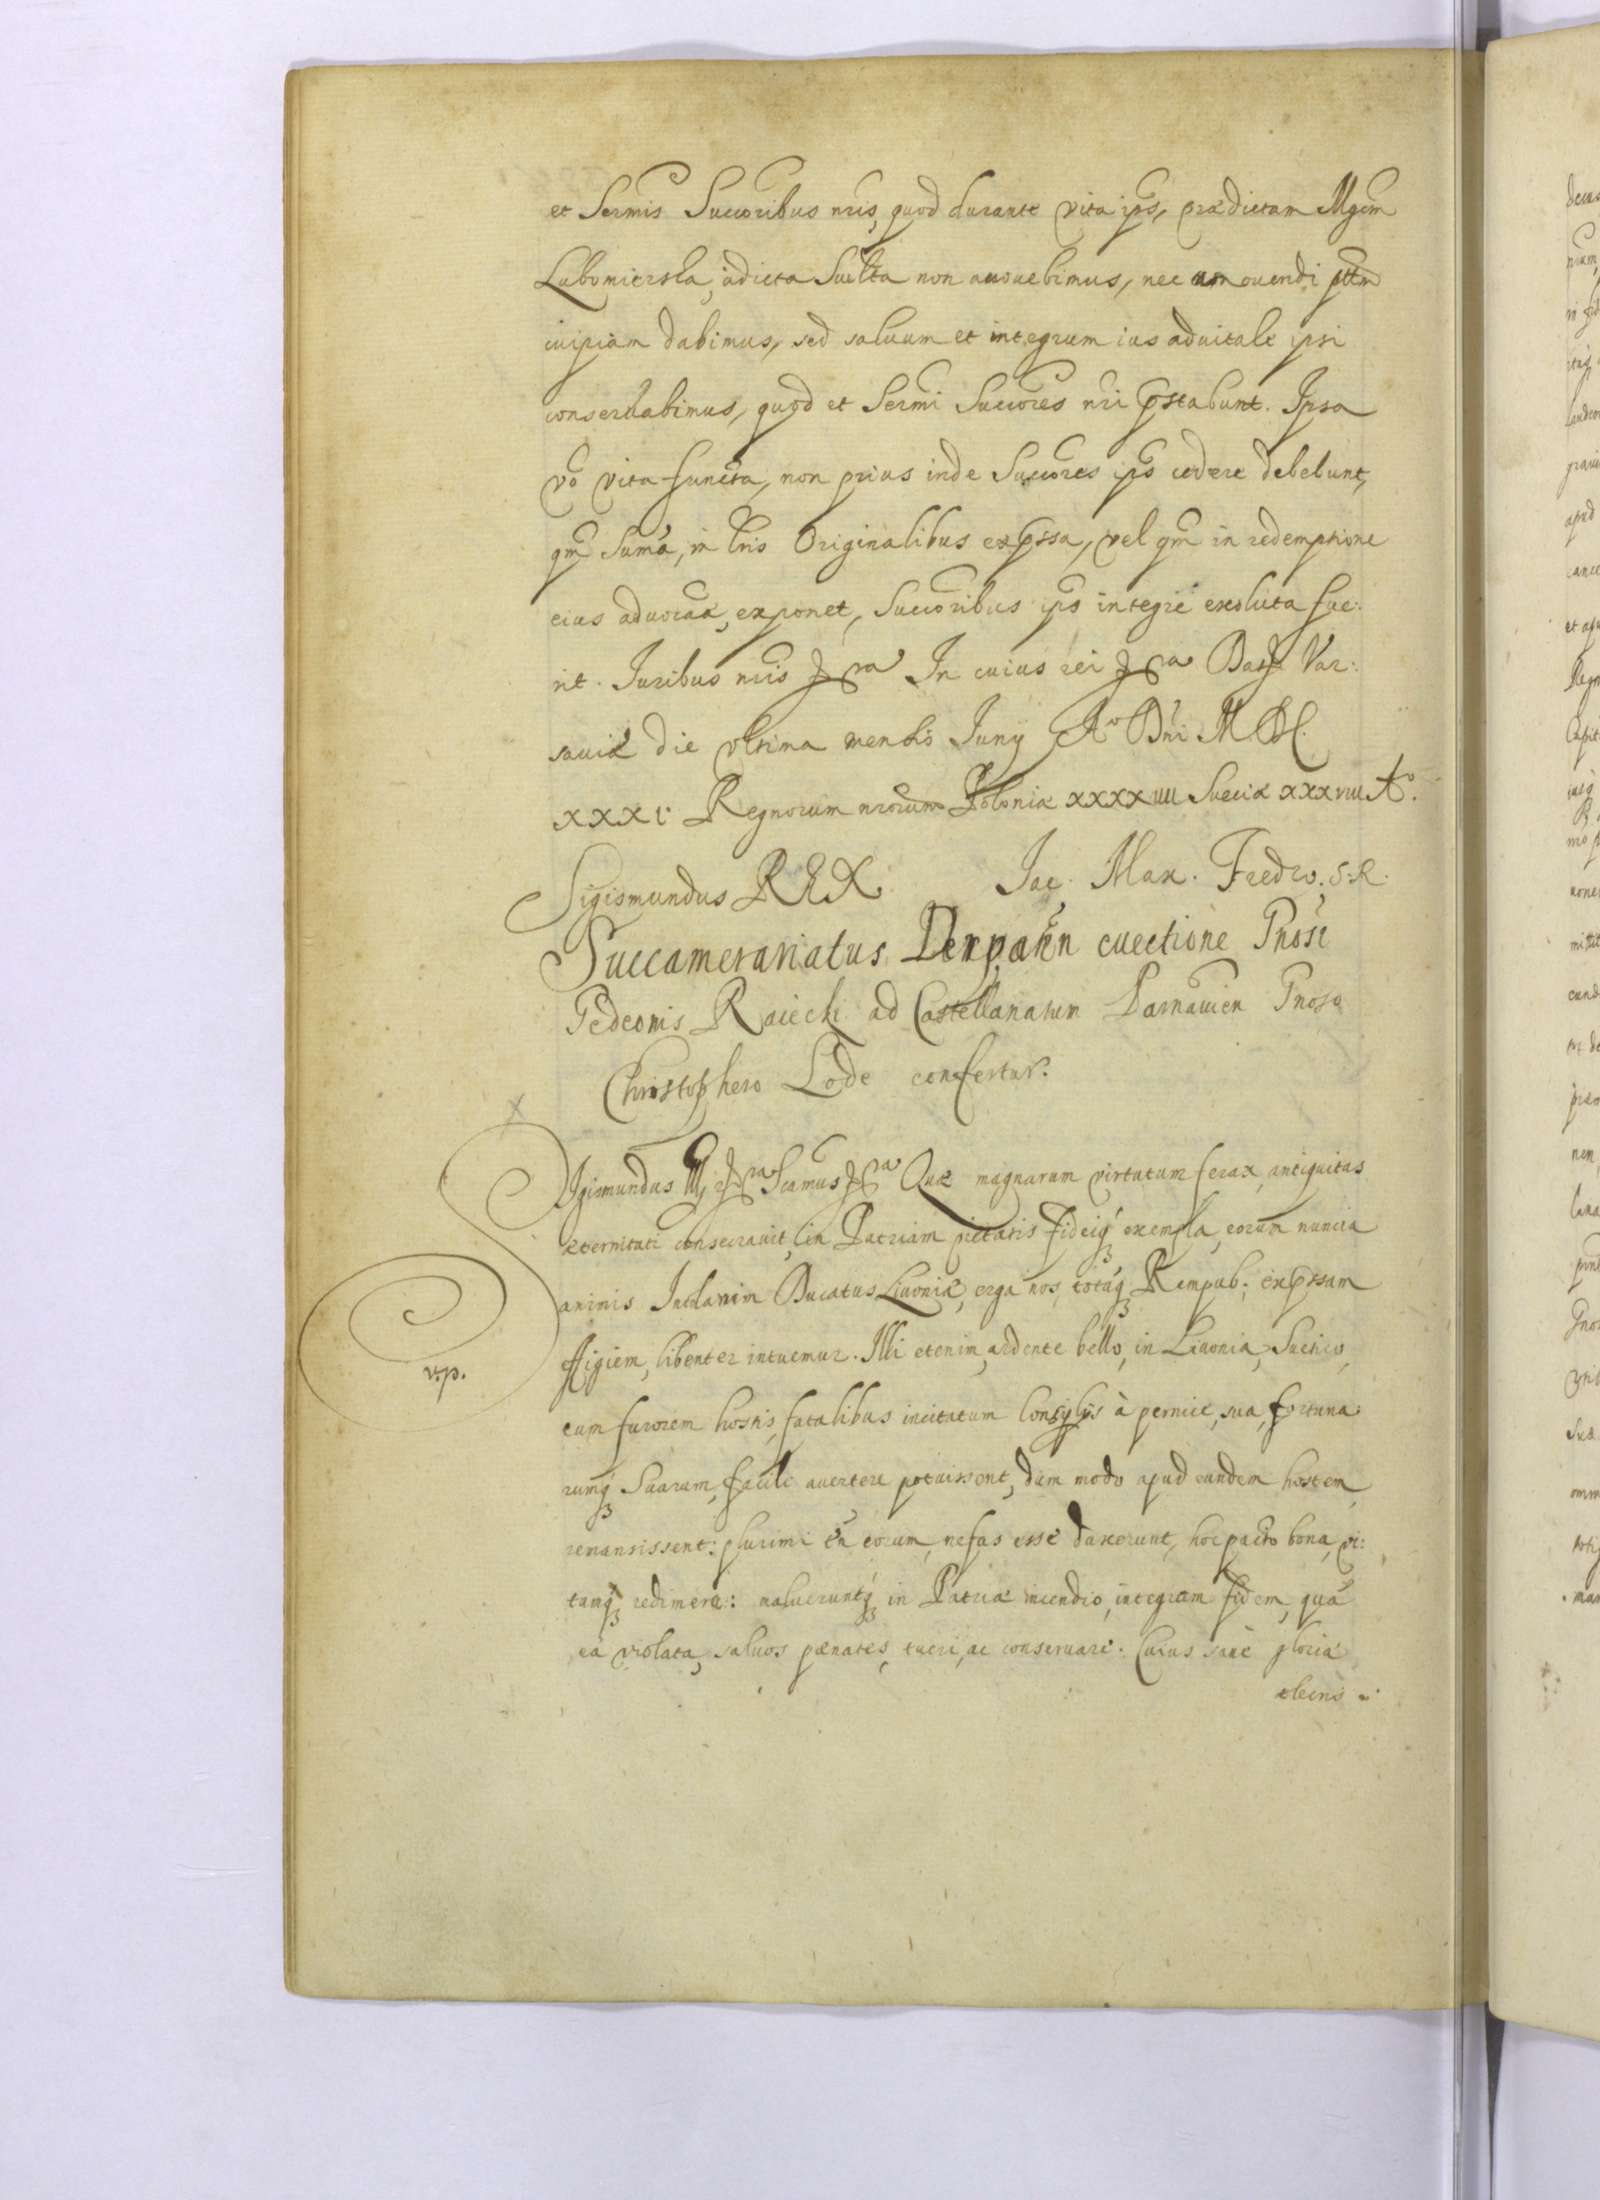 et Sermis Succoribus nris, quod durante vita ips, prædictam Mgcm
Lubomierska, à dicta Scultta non amovebimus, nec amovendi pttm
cuipiam dabimus, sed salvum et integrum ius advitale ipsi
conservabimus, quod et Sermi Succores nri pstabunt. Ipsa
vo vita functa, non prius inde Succores ips cedere debebunt,
qm suma, in lris Originalibus expssa, vel qm in redemptione
eius advocaæ, exponet, Succoribus ips integre exoluta fue:
rit. Juribus nris &ra In cuius rei &ra Dat Var:
saviæ die ultima mensis Juny Ao Dni M.DC.
xxxi: Regnorum nrorum Poloniæ xxxxiiii Sueciæ xxxviii Ao.
Sigismundus REX. Jac. Max. Fredro. S. R.
Succamerariatus Derpaten evectione Gnosi
Gedeonis Raiecki ad Castellanatum Parnavien Gnoso
Christophero Lode confertur.
Sigismundus III &ra Scamus &ra Quæ magnarum virtutum ferax antiquitas
æternitati consecravit, in Patriam pietatis fideiq exempla, eorum nuncia
animis Incolarum Ducatus Livoniæ, erga nos, totáq Rempub: expssam
effigiem, libenter intuemur. Illi etenim, ardente bello, in Livonia, Suetico,
cum furorem hostis, fatalibus incitatum Consylys à pernicie, sua, fortuna
rumq Suarum, facile avertere potuissent, dum modo apud eundem hostem
remansissent: plurimi tn eorum, nefas esse duxerunt, hoc pacto bona, vi:
tamq redimere: malueruntq in Patriæ incendio, integram fidem, quá
ea violata, salvos pænates, tueri, ac conservare. Cuius sane gloriæ
v.p.